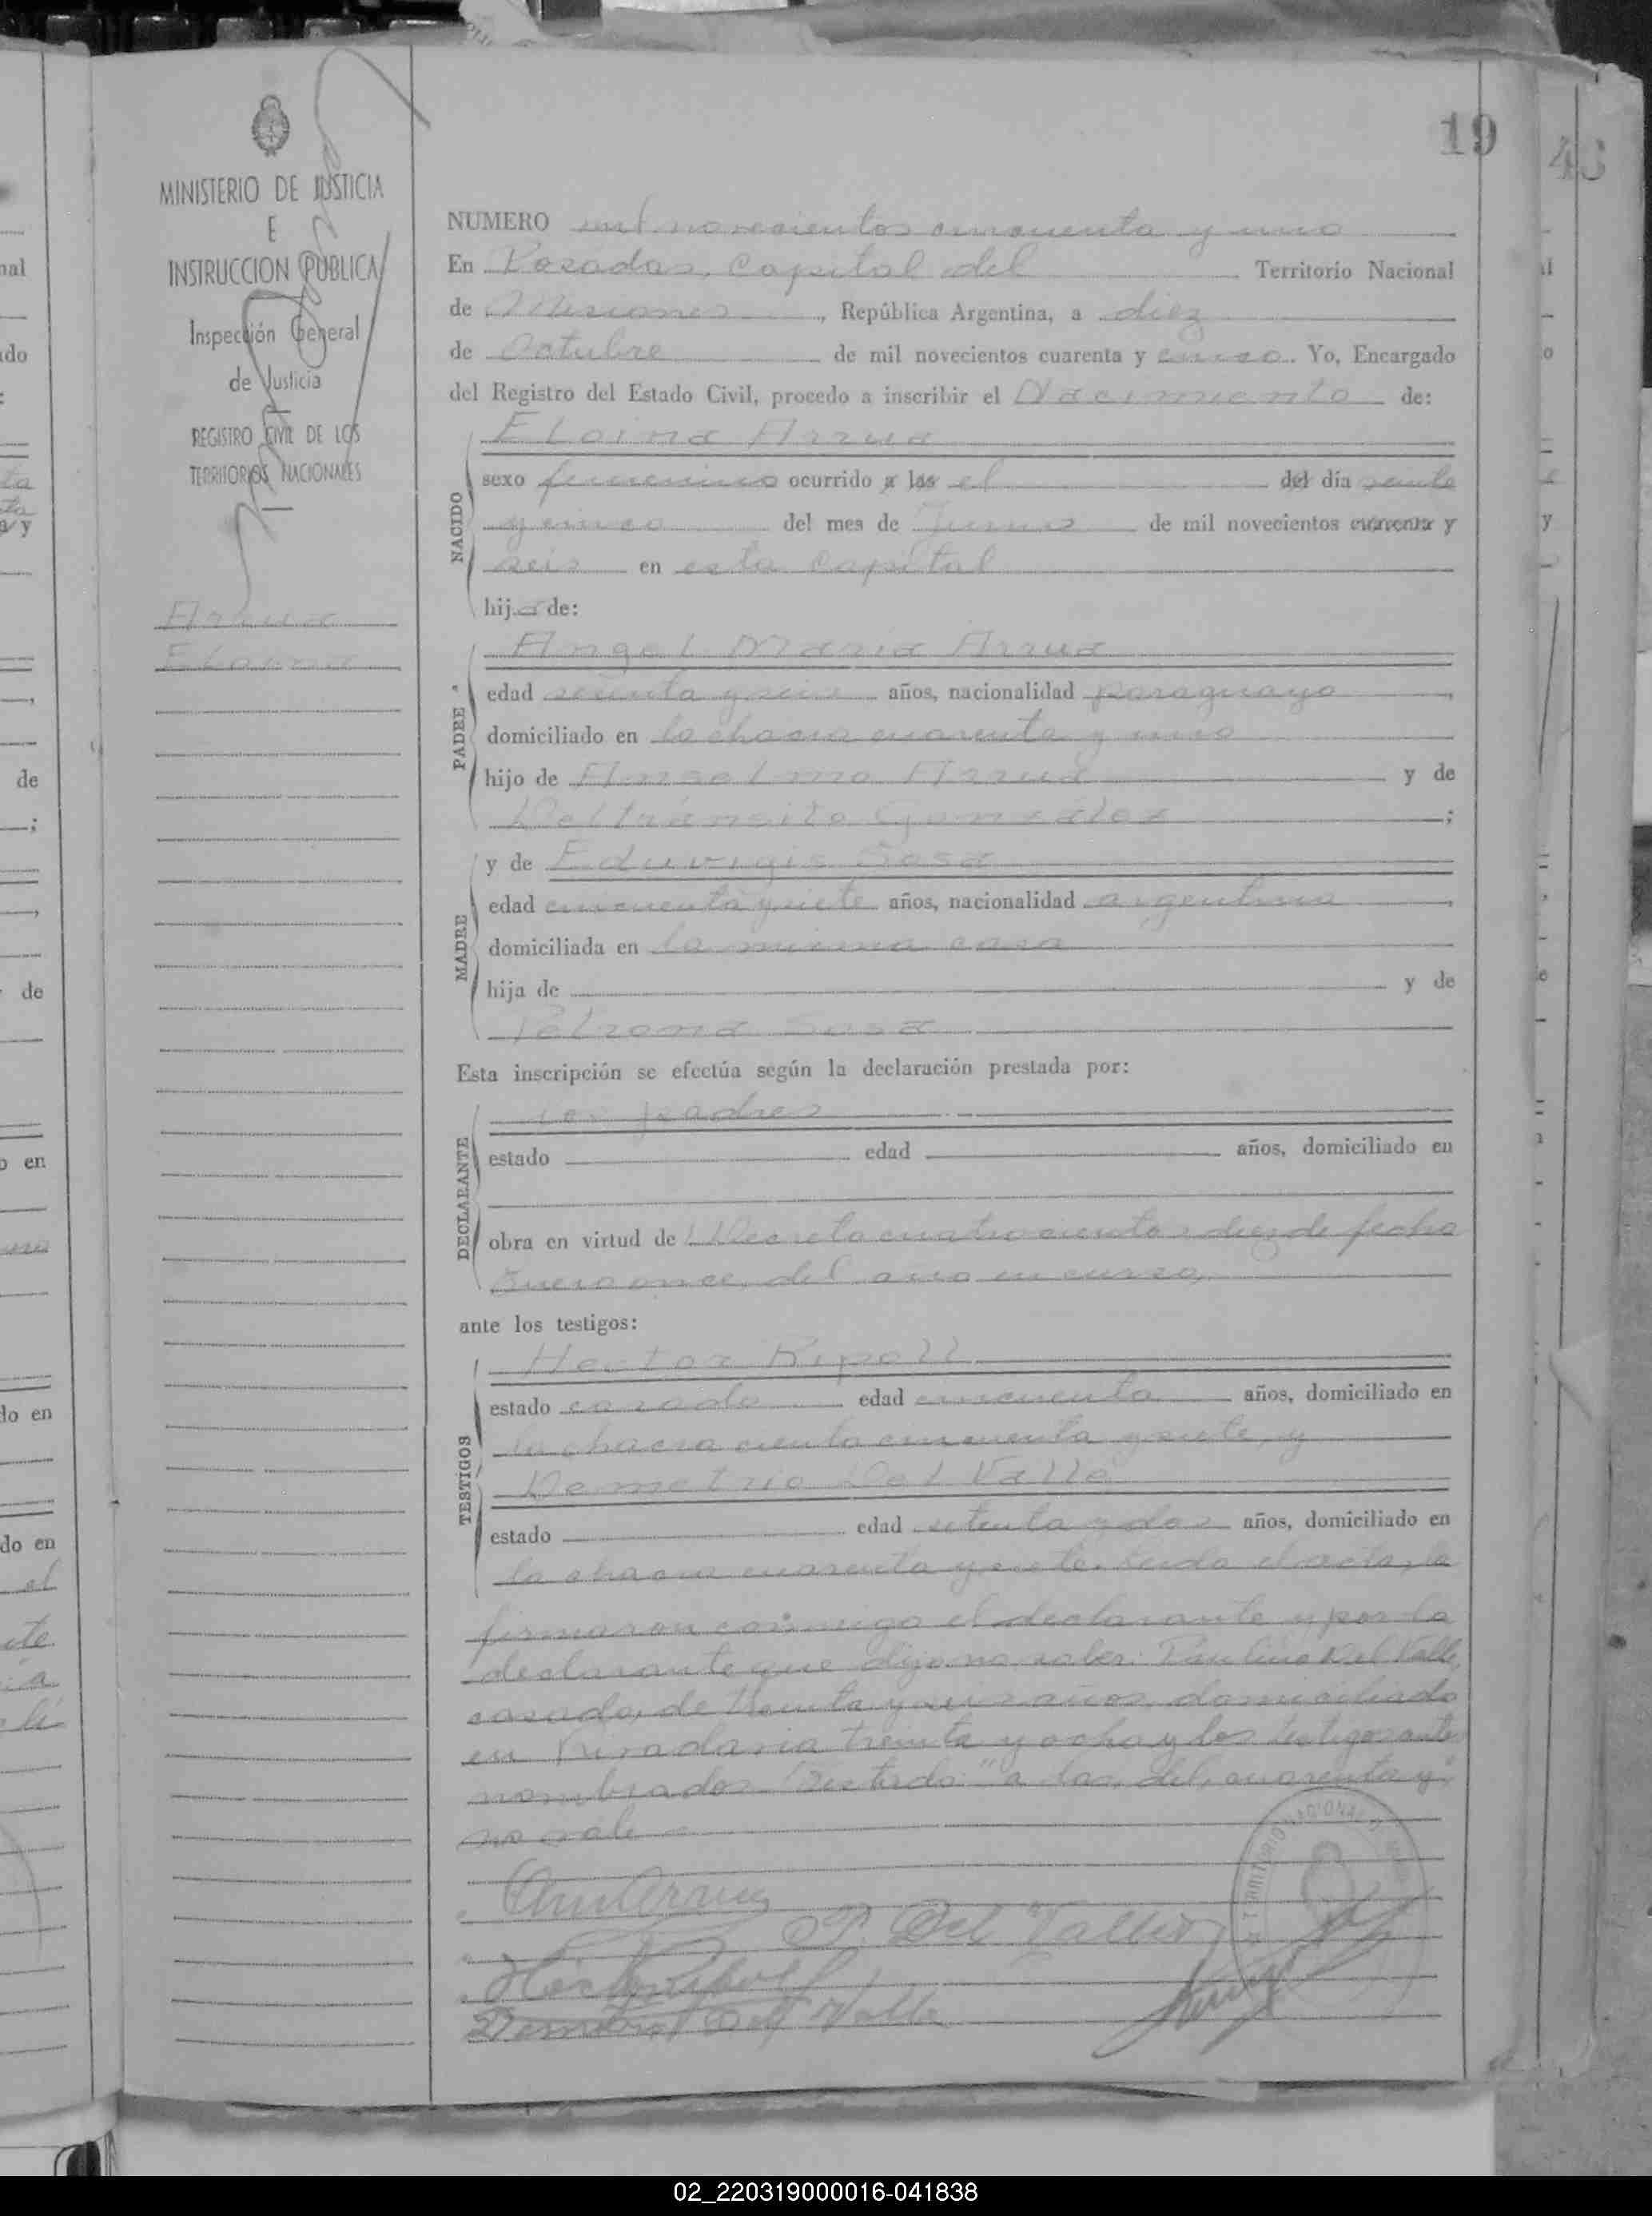 19
43
MINISTERIO DE JUSTICIA
E
INSTRUCCION PUBLICA
Inspección General
de Justicia
REGISTRO CIVIL DE LOS
TERRITORIOS NACIONALES
Arrua
Eloina
NUMERO mil novecientos cincuenta y uno
En Posadas, Capital del Territorio Nacional
de Misiones, República Argentina, a diez
de Octubre de mil novecientos cuarenta y cinco. Yo, Encargado
del Registro del Estado Civil, procedo a inscribir el Nacimiento de:
NACIDO
Eloina Arrua
sexo femenino ocurrido a las el del día veinte
y cinco del mes de Junio de mil novecientos cuarenta y
seis en esta Capital
hija de:
PADRE
Angel Maria Arrua
edad sesenta y seis años, nacionalidad paraguayo,
domiciliado en la chacra cuarenta y uno
hijo de Anselmo Arrua y de
Deltránsito González;
MADRE
y de Eduvigis Sosa
edad cincuenta y siete años, nacionalidad argentina,
domiciliada en la misma casa
hija de y de
Petrona Sosa
Esta inscripción se efectúa según la declaración prestada por:
DECLARANTE
los padres
estado edad años, domiciliado en
obra en virtud de Decreto cuatrocientos diez de fecha
Enero once, del año en curso,
ante los testigos:
TESTIGOS
Hector Ripoll
estado casado edad cincuenta años, domiciliado en
la chacra ciento cincuenta y siete, y
Demetrio Del Valle
estado edad setenta y dos años, domiciliado en
la chacra cuarenta y siete. Leida el acta, la
firmaron conmigo el declarante y por la
declarante que dijo no saber. Paulino Del Valle,
casado, de treinta y años, domiciliado
en Rivadavia treinta y ocho y los testigos ante
nombrados. Testado: "a las, del, cuarenta y"
no vale
P. Del Valle
Hector Ripoll
Demetrio Del Valle
TERRITORIO NACIONAL
02_220319000016-041838